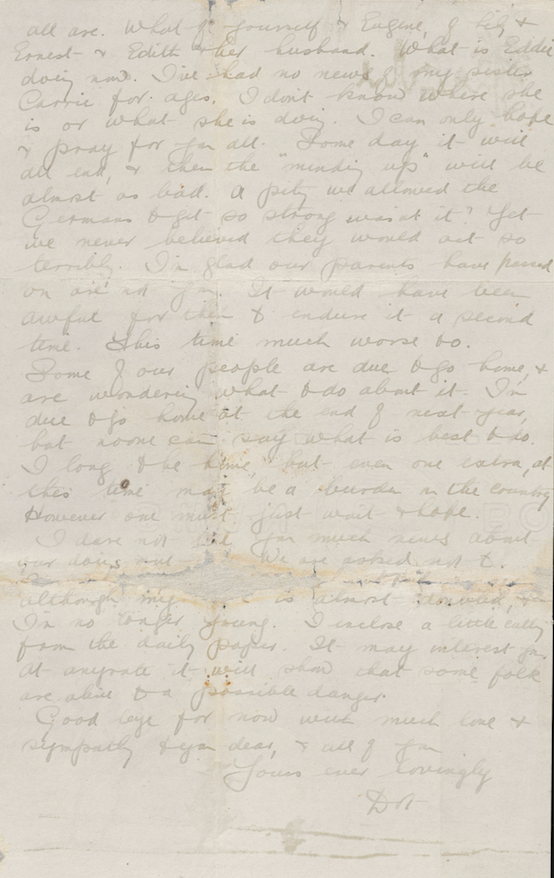 all are. What of yourself & Eugene, & Lily &
Ernest & Edith & her husband. What is Eddie
doing now. I've had no news of my sister
Carrie for ages. I don't know where she
is or what she is doing. I can only hope
& pray for you all. Some day it will
all end, & then the "minding up" will be
almost as bad. A pity we allowed the
Germans to get so strong was at it? Yet
we never believed they would act so
terribly. I'm glad our parents have passed
on are not you. It would have been
awful for them to endure it a second
time. This time much worse to.
Some of our people are due to go home, &
are wondering what to do about it. I'm
due to go home at the end of next year,
but noone can say what is best to do.
I long to be "home" but even one extra, at
this time may be a burden in the country
However one must just wait & hope.
I dare not tell you much news about
our doings We are asked not to.
although my is almost &
I'm no longer young. I inclose a little
from the daily paper. It may interest you
At anyrate it will show that some folk
are alive to a possible danger.
Good bye for now with much love &
sympathy to you dear, & all of you
Yours ever lovingly
Dot